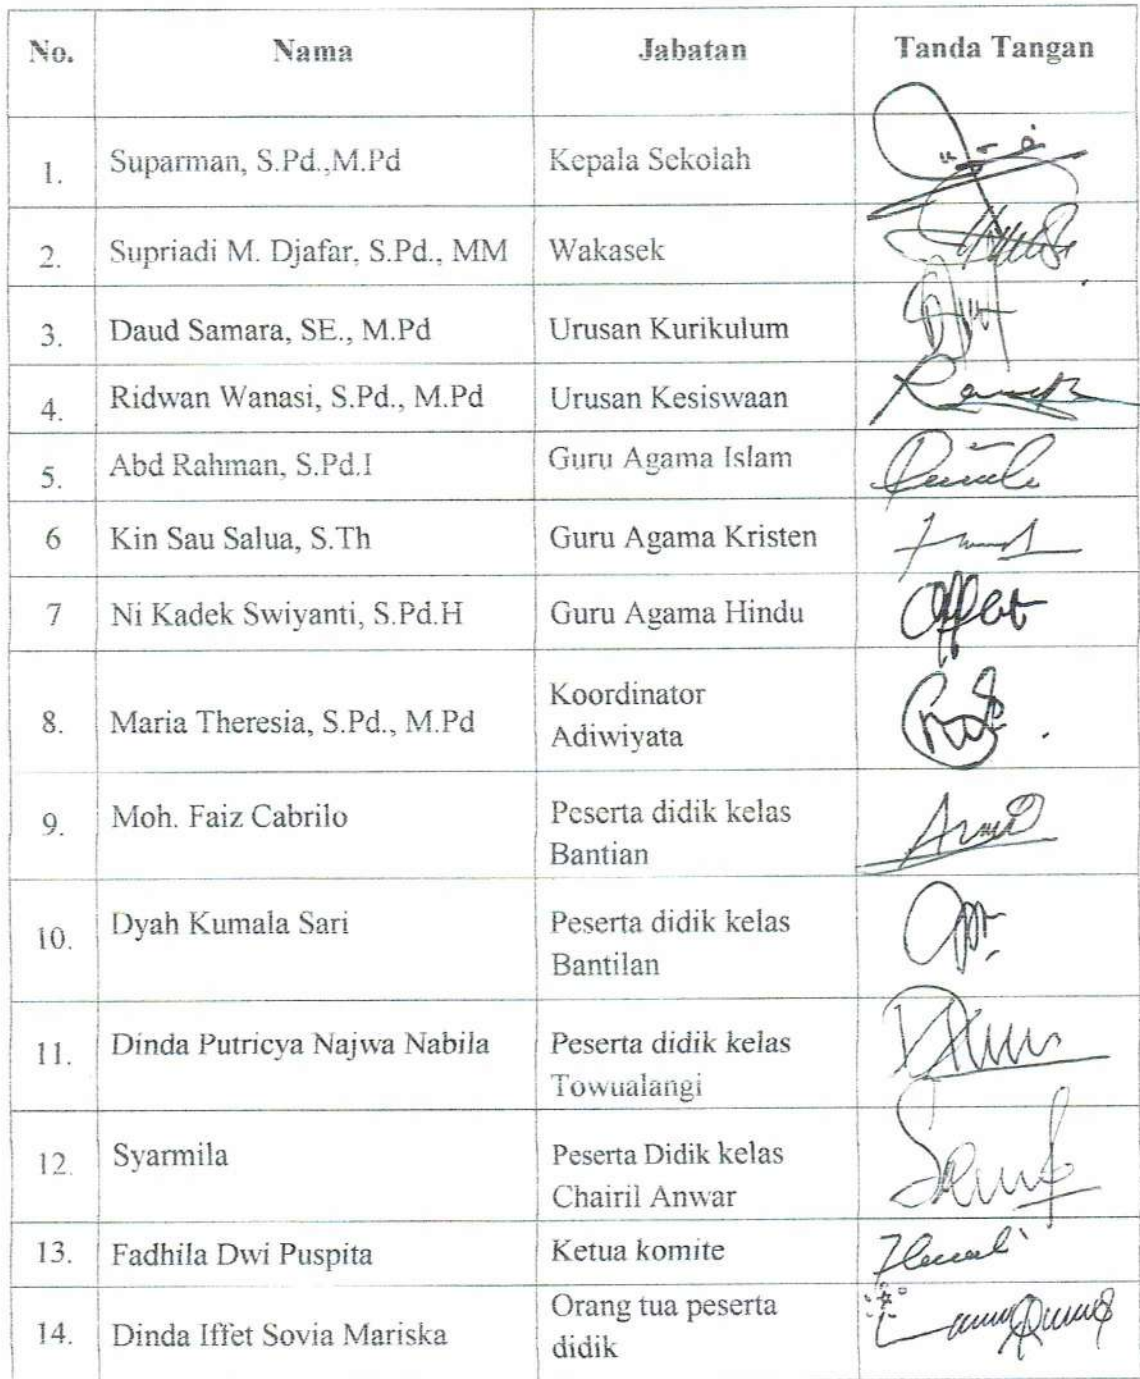 No. Nama Jabatan Tanda Tangan
1. Suparman, S.Pd.,M.Pd Kepala Sekolah
2. Supriadi M. Djafar, S.Pd., MM Wakasek
3. Daud Samara, SE., M.Pd Urusan Kurikulum
4. Ridwan Wanasi, S.Pd., M.Pd Urusan Kesiswaan
5. Abd Rahman, S.Pd.I Guru Agama Islam
6 Kin Sau Salua, S.Th Guru Agama Kristen
7 Ni Kadek Swiyanti, S.Pd.H Guru Agama Hindu
8. Maria Theresia, S.Pd., M.Pd Koordinator
Adiwiyata
9. Moh. Faiz Cabrilo Peserta didik kelas
Bantian
10. Dyah Kumala Sari Peserta didik kelas
Bantilan
11. Dinda Putricya Najwa Nabila Peserta didik kelas
Towualangi
12. Syarmila Peserta Didik kelas
Chairil Anwar
13. Fadhila Dwi Puspita Ketua komite
14. Dinda Iffet Sovia Mariska Orang tua peserta
didik